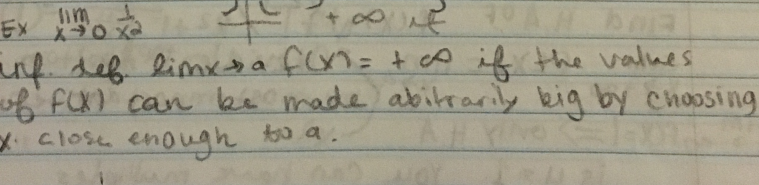 Ex lim x→0 1/x² + ∞ if
inf. def. lim x→a f(x) = + ∞ if the values
of f(x) can be made abitrarily big by choosing
x. close enough to a.